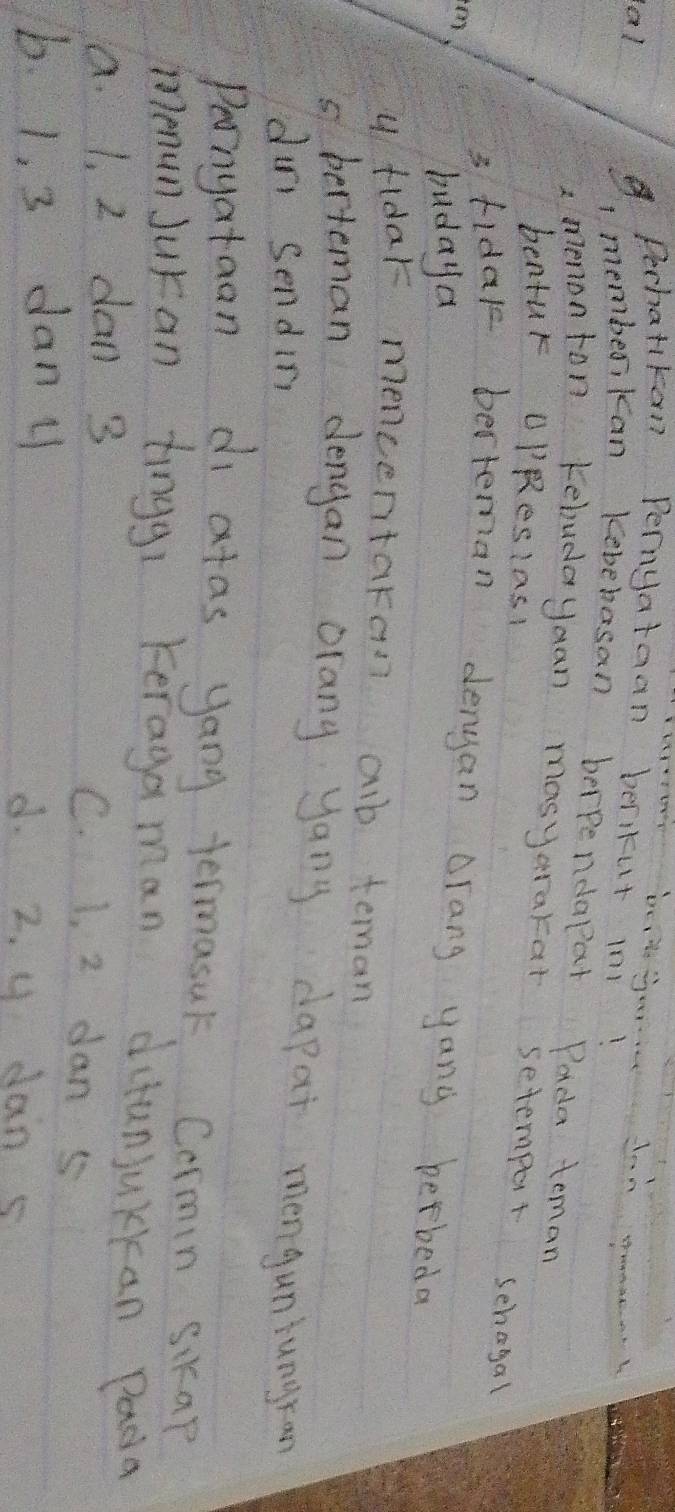 al
9 Perhatikan Pernyataan berikut ini !
1 memberikan kebebasan berpendapat Pada teman
2 menonton kebudayaan masyarakat setempat sebagai
bentuk apResiasi
3 tidak berteman dengan orang yang berbeda
budaya
4 tidak mencentakan aib teman
5 berteman dengan orang yang dapat menguntungkan
diri sendiri
Pernyataan di atas yang termasuk Cermin sikap
menunjukan tinggi keragaman ditunjukkan Pada
a. 1, 2 dan 3 C. 1, 2 dan 5
b. 1, 3 dan 4 d. 2, 4 dan 5
m,